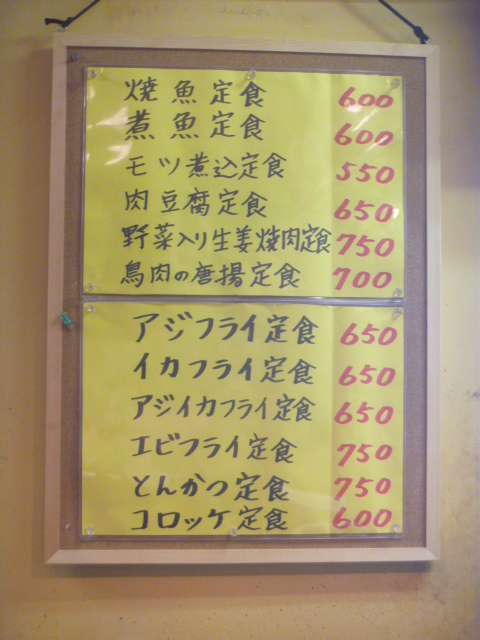 焼魚定食 600
煮魚定食 600
モツ煮込定食 550
肉豆腐定食 650
野菜入り生姜焼肉定食 750
鳥肉の唐揚定食 700
アジフライ定食 650
イカフライ定食 650
アジイカフライ定食 650
エビフライ定食 750
とんかつ定食 750
コロッケ定食 600